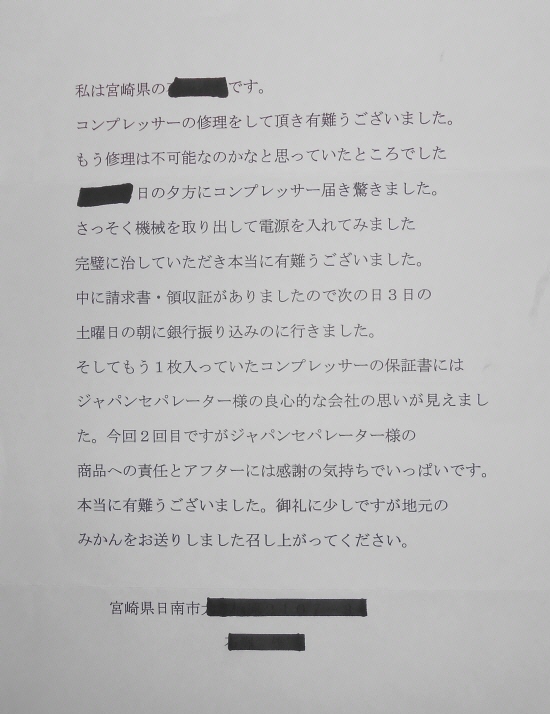 私は宮崎県の
です。
コンプレッサーの修理をして頂き有難うございました。
もう修理は不可能なのかなと思っていたところでした
日の夕方にコンプレッサー届き驚きました。
さっそく機械を取り出して電源を入れてみました
完璧に治していただき本当に有難うございました。
中に請求書・領収証がありましたので次の日３日の
土曜日の朝に銀行振り込みのに行きました。
そしてもう１枚入っていたコンプレッサーの保証書には
ジャパンセパレーター様の良心的な会社の思いが見えまし
た。今回２回目ですがジャパンセパレーター様の
商品への責任とアフターには感謝の気持ちでいっぱいです。
本当に有難うございました。御礼に少しですが地元の
みかんをお送りしました召し上がってください。
宮崎県日南市